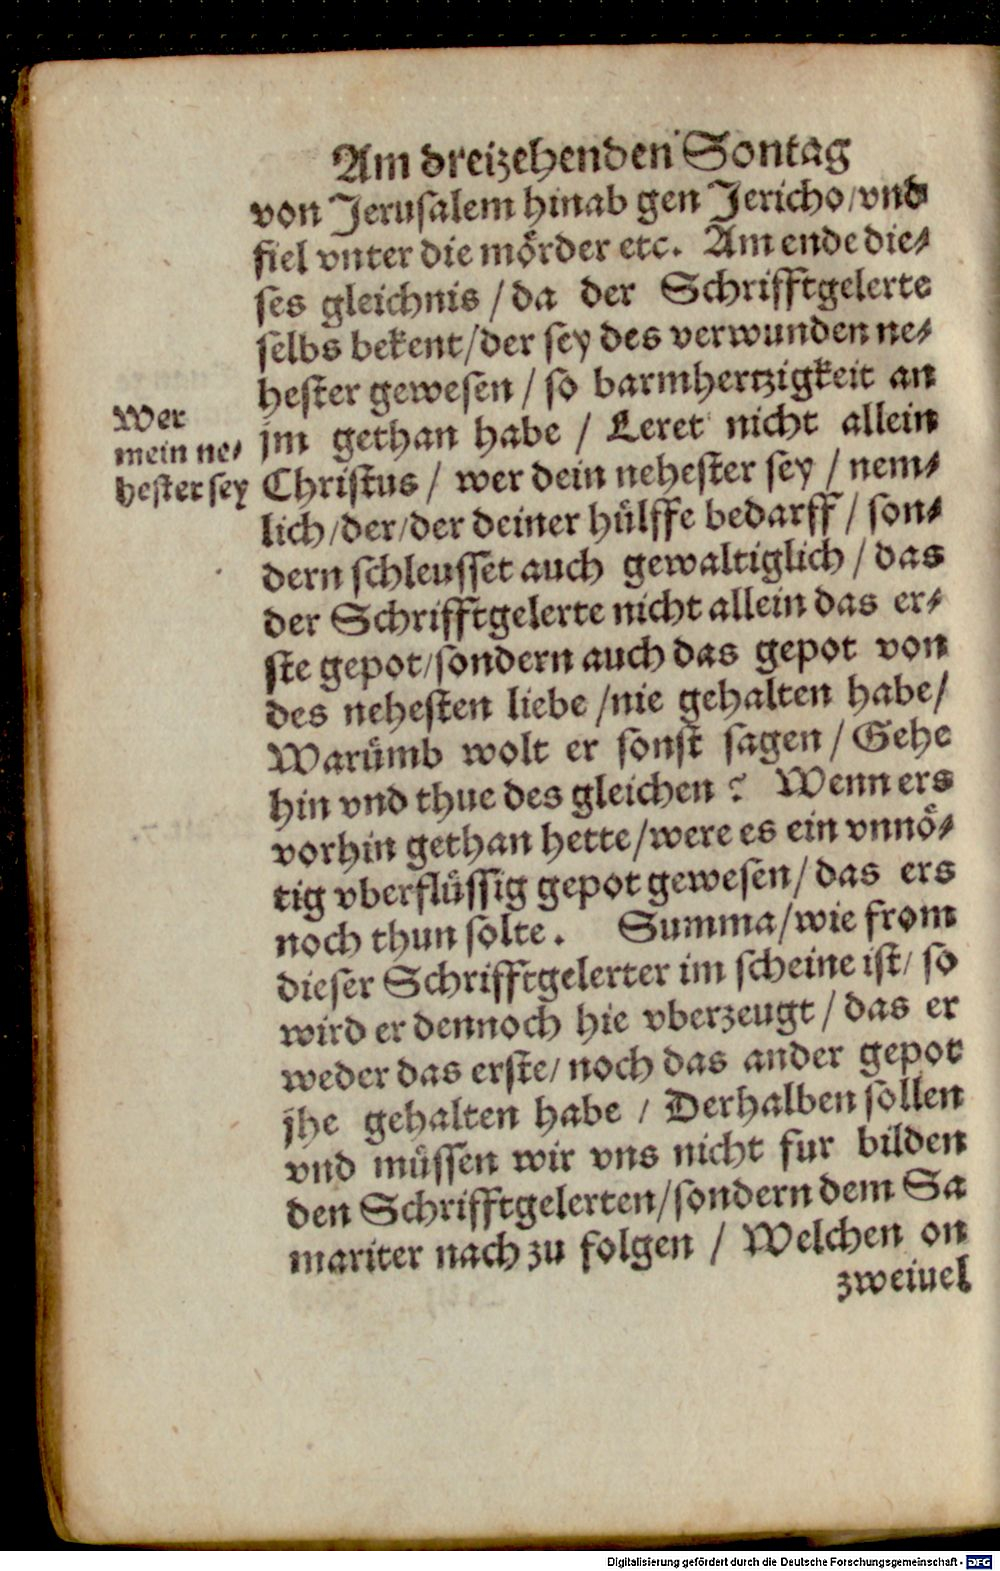 Am dreizehenden Sontag
von Jerusalem hinab gen Jericho/vnd
fiel vnter die mörder etc. Am ende die-
ses gleichnis / da der Schrifftgelerte
selbs bekent/der sey des verwunden ne-
hester gewesen / so barmhertzigkeit an
jm gethan habe / Leret nicht allein
Wer
mein ne-
hester sey
Christus / wer dein nehester sey / nem-
lich/der/der deiner hülffe bedarff / son-
dern schleusset auch gewaltiglich / das
der Schrifftgelerte nicht allein das er-
ste gepot/sondern auch das gepot von
des nehesten liebe /nie gehalten habe/
Warümb wolt er sonst sagen / Gehe
hin vnd thue des gleichen ? Wenn ers
vorhin gethan hette/were es ein vnnö-
tig vberflüssig gepot gewesen/ das ers
noch thun solte. Summa/wie from
dieser Schrifftgelerter im scheine ist/ so
wird er dennoch hie vberzeugt / das er
weder das erste/ noch das ander gepot
jhe gehalten habe / Derhalben sollen
vnd müssen wir vns nicht fur bilden
den Schrifftgelerten/sondern dem Sa
mariter nach zu folgen / Welchen on
zweiuel
Digitalisierung gefördert durch die Deutsche Forschungsgemeinschaft - DFG